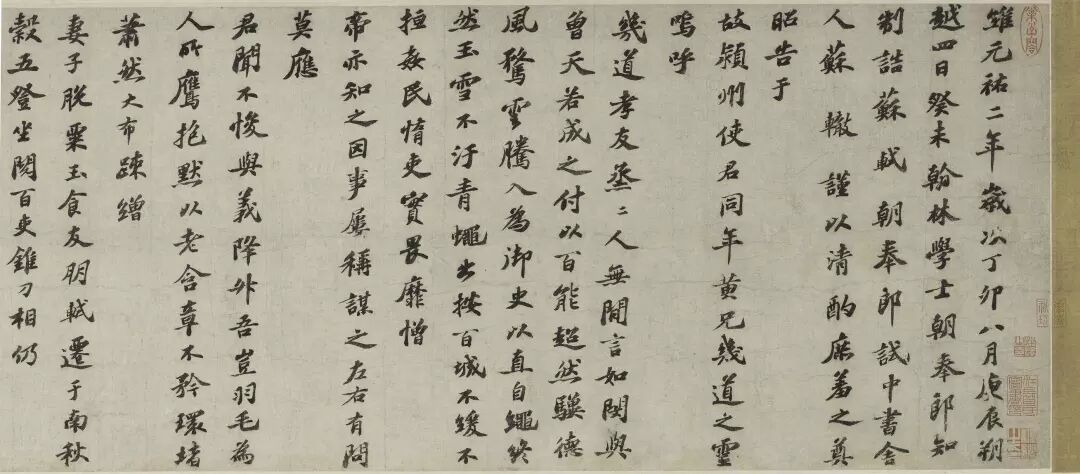 維元祐二年歲次丁卯八月庚辰朔
越四日癸未翰林學士朝奉郎知
制誥蘇軾朝奉郎試中書舍
人蘇轍謹以清酌庶羞之奠
昭告于
故潁州使君同年黃兄幾道之靈
嗚呼
幾道孝友烝〻人無間言如閔與
曾天若成之付以百能超然驥德
風騖雲騰入為御史以直自繩終
然玉雪不汙青蠅出按百城不緩不
搄姦民惰吏實畏靡憎
帝亦知之因事屢稱謀之左右有問
莫應
君聞不悛與義降升吾豈羽毛為
人所鷹抱默以老含章不矜環堵
蕭然大布疎繒
妻子脫粟玉食友朋軾遷于南秋
穀五登坐閱百吏錐刀相仍